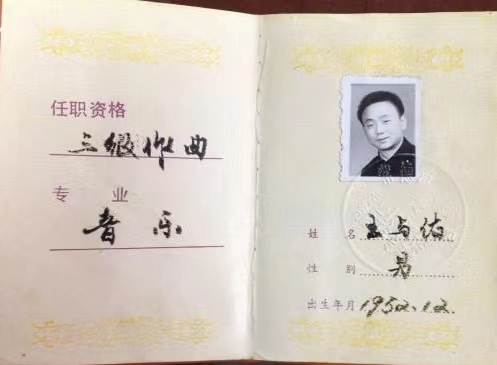 任职资格
三级作曲
专 业
音乐
姓 名 王与佑
性 别 男
出生年月 1952.12.